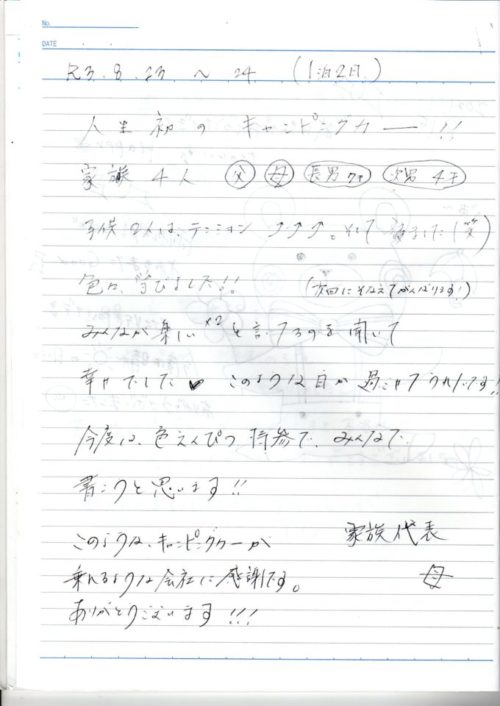 No.
DATE
R3.8.23 〜 24 (1泊2日)
人生初のキャンピングカー!!
家族4人 父 母 長男7才 次男4才
子供2人は、テンション↗↗↗。そして 諦ました(笑)
色々、学びました!! (次回にそなえてがんばります!)
みんなが楽しい×2と言ってるのを聞いて
幸せでした♥ このような日が過ごせてうれしいです!!
今度は、色えんぴつ持参で、みんなで
書こうと思います!!
このような、キャンピングカーが
乗れるような会社に感謝です。
ありがとうございます!!!
家族代表
母